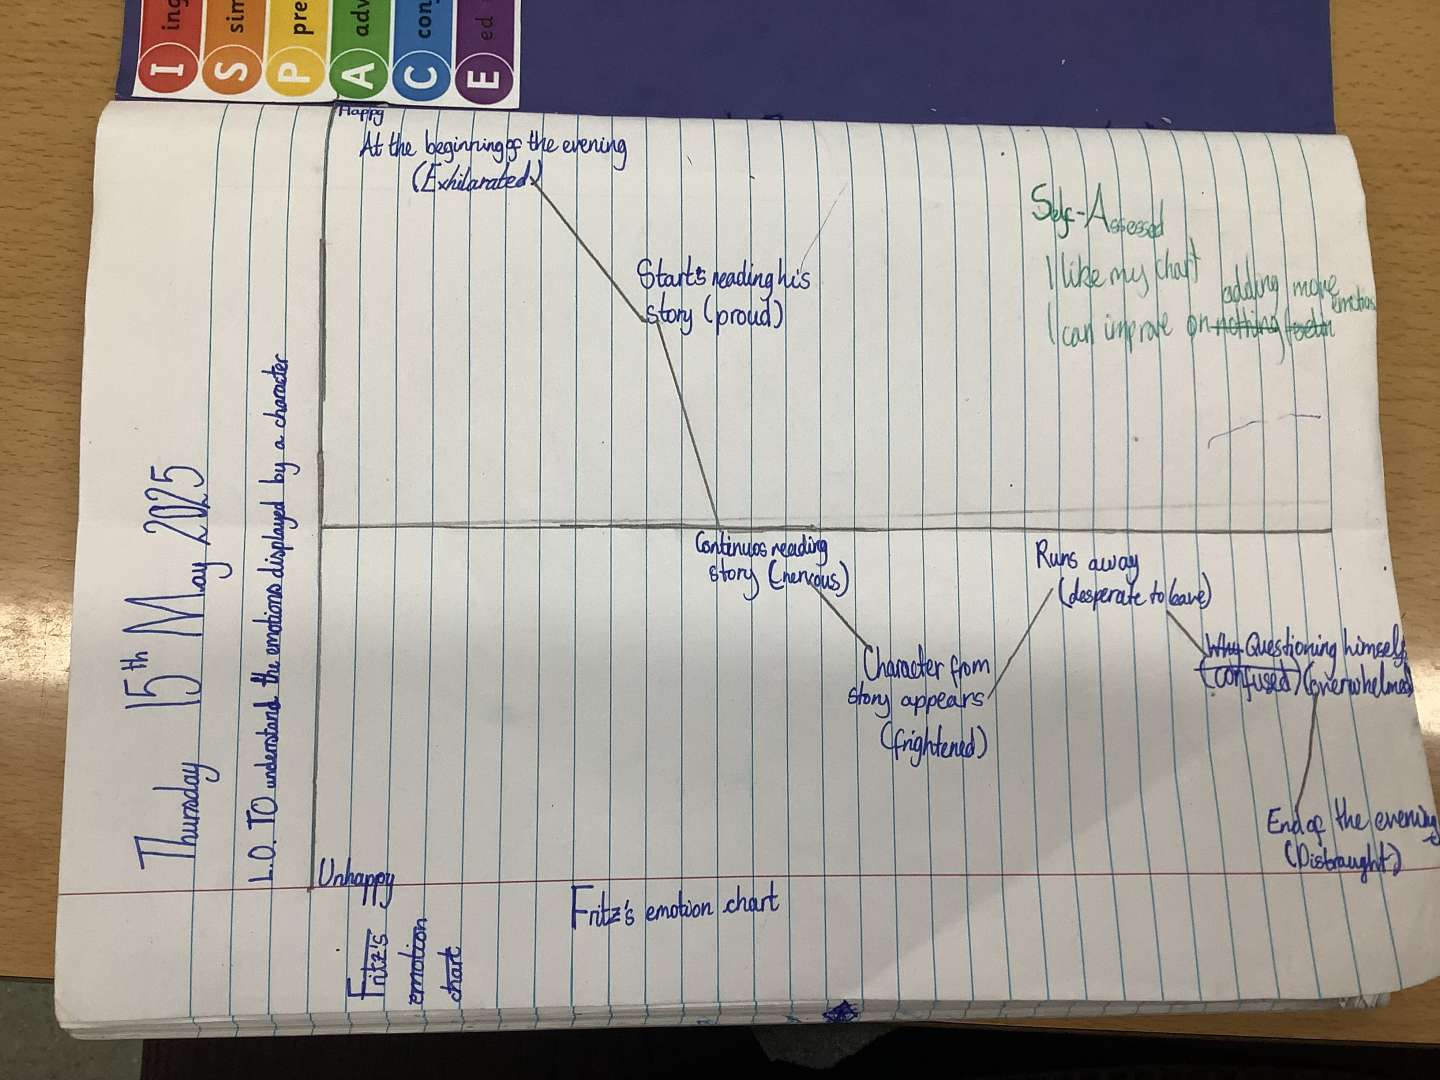 I ing
S sim
P pre
A adv
C con
E ed
Thursday 15th May 2025
L.O. TO understand the emotions displayed by a character
Happy
At the beginning of the evening
(Exhilarated)
Starts reading his
story (proud)
Continuos reading
story (nervous)
Character from
story appears
(frightened)
Runs away
(desperate to leave)
Why Questioning himself
(confused) (overwhelmed)
End of the evening
(Distraught)
Unhappy
Fritz's
emotion
chart
Fritz's emotion chart
Self-Assessed
I like my chart
adding more emotions
I can improve on nothing